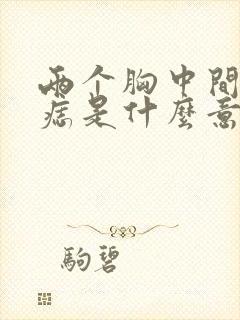 两个胸中間
痣是什麼意
駒碧